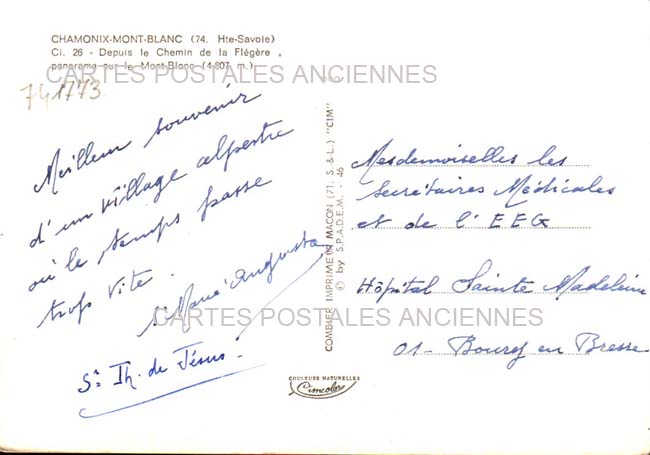 CHAMONIX-MONT-BLANC (74. Hte-Savoie)
Cl. 26 - Depuis le Chemin de la Flégère,
panorama sur le Mont-Blanc (4.807 m.)
CARTES POSTALES ANCIENNES
741773
Meilleur souvenir
d'un village alpestre
où le temps passe
trop vite.
Sr Marie Augusta
Sr Th. de Jésus.
COMBIER IMPRIMEUR MACON (71. S.-&-L.) "CIM"
© by S.P.A.D.E.M. - 46
Mesdemoiselles les
Secrétaires Médicales
et de l'EEG
Hôpital Sainte Madeleine
01 - Bourg en Bresse
CARTES POSTALES ANCIENNES
COULEURS NATURELLES
Cimcolor